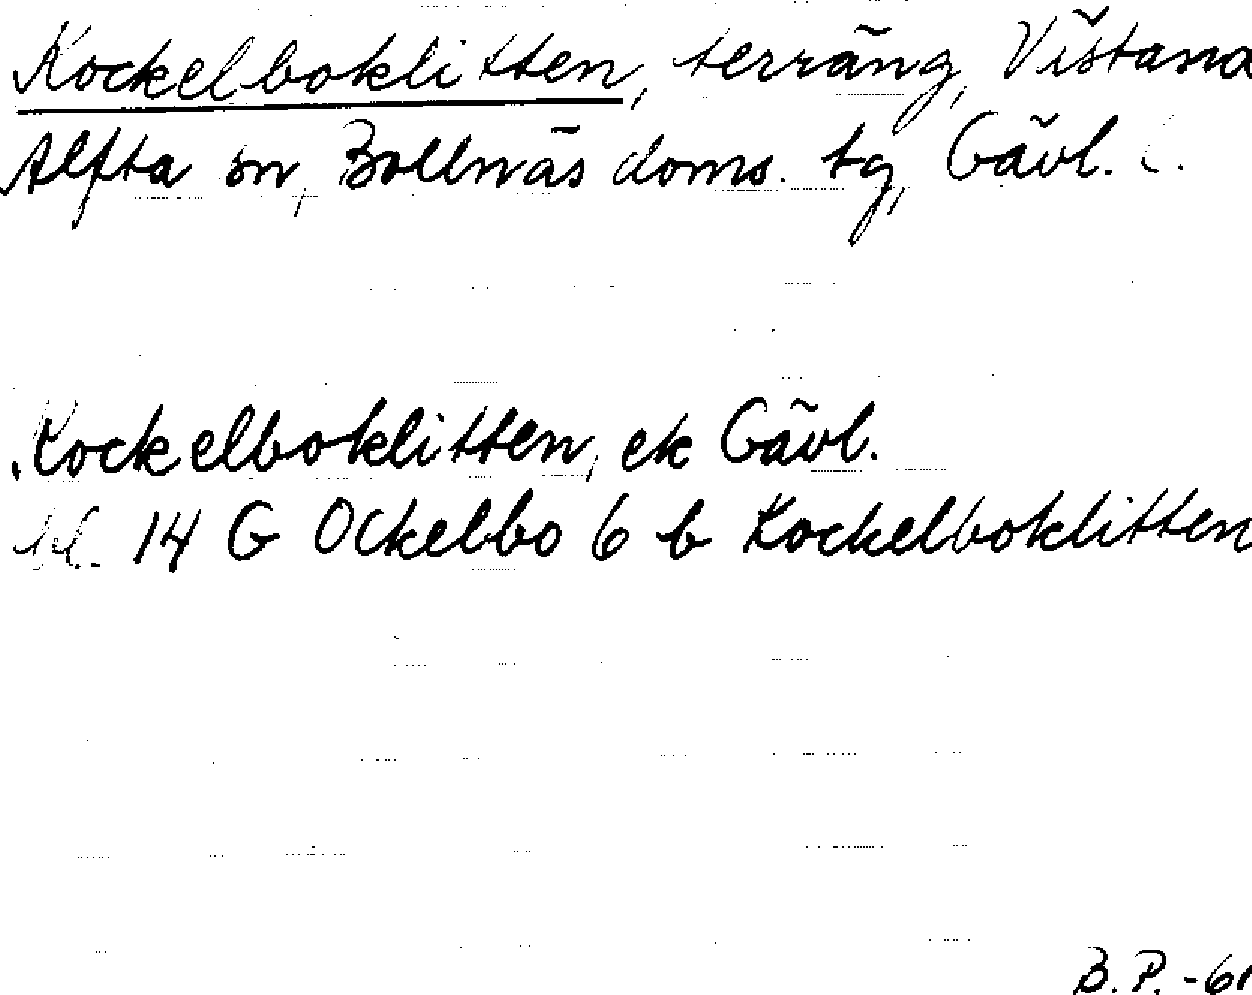 Kockelboklitten, terräng, Västana
Alfta sn, Bollnäs doms. tg, Gävl.
Kockelboklitten, ek Gävl.
bl. 14 G Ockelbo 6 b Kockelboklitten
B.P. -61